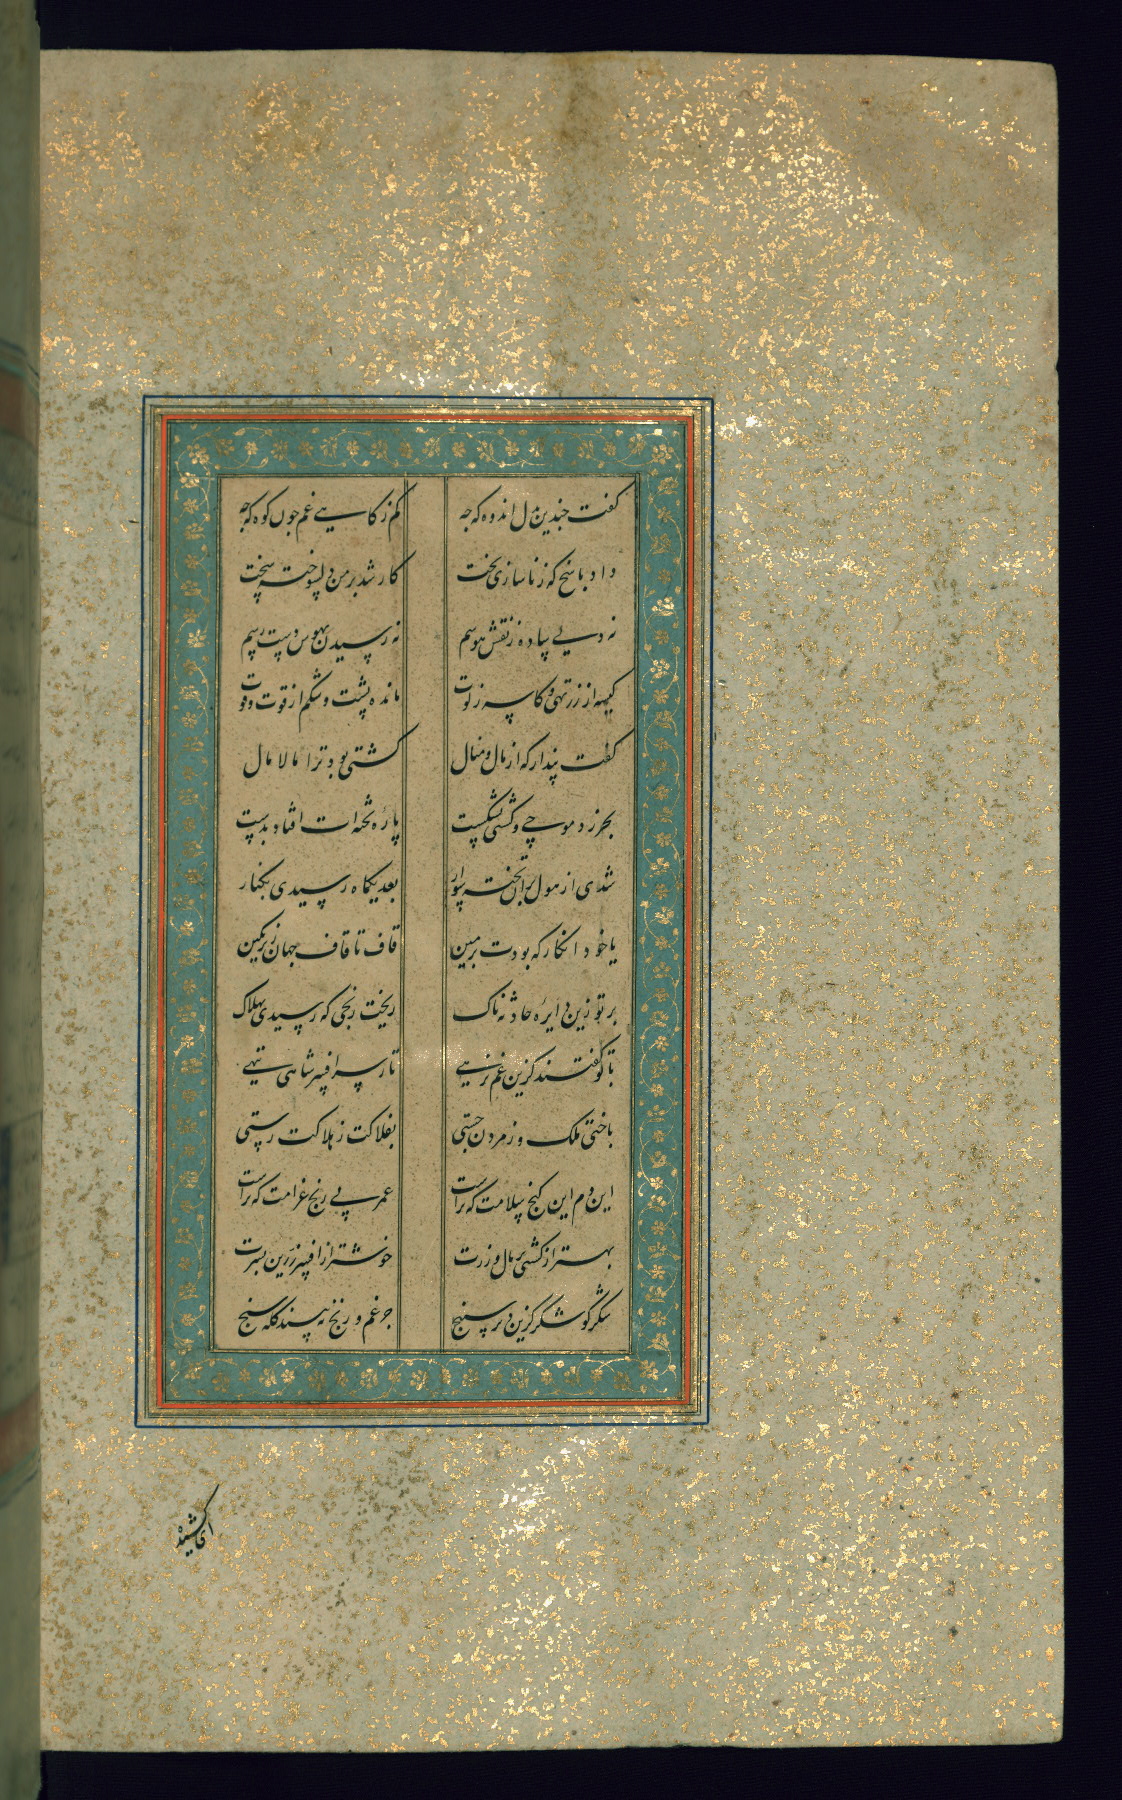 گفت چندین بدل اندوه که چه کم ز کاهی غم چون کوه که چه
داد پاسخ که ز ناسازی بخت کار شد بر من دلسوخته سخت
نه دیی پیاده ز نقش هوسم نه رسیدن بهوس دسترسم
کیسه از زر تهی و کاسه ز لوت مانده پشت و شکم از قوت و قوت
گفت پندار که از مال و منال کشتی بود ترا مالامال
بحر زد موجی و کشتی بشکست پاره تخته ات افتاد بدست
شدی از هول بران تخته سوار بعد یکماه رسیدی بکنار
یا خود انکار که بودت بزمین قاف تا قاف جهان زیر نگین
بر تو زین دایره حادثه ناک ریخت رنجی که رسیدی بهلاک
با تو گفتند کزین غم نرهی تا ز سر افسر شاهی ننهی
باختی ملک و ز مردن جستی بفلاکت ز هلاکت رستی
این دم این کنج سلامت که تراست عمر بی رنج غرامت که تراست
بهتر از کشتی پر مال و زرت خوشتر از افسر زرین بسرت
شکر گو شکر کزین دیر سپنج جز غم و رنج نبیند گله سنج